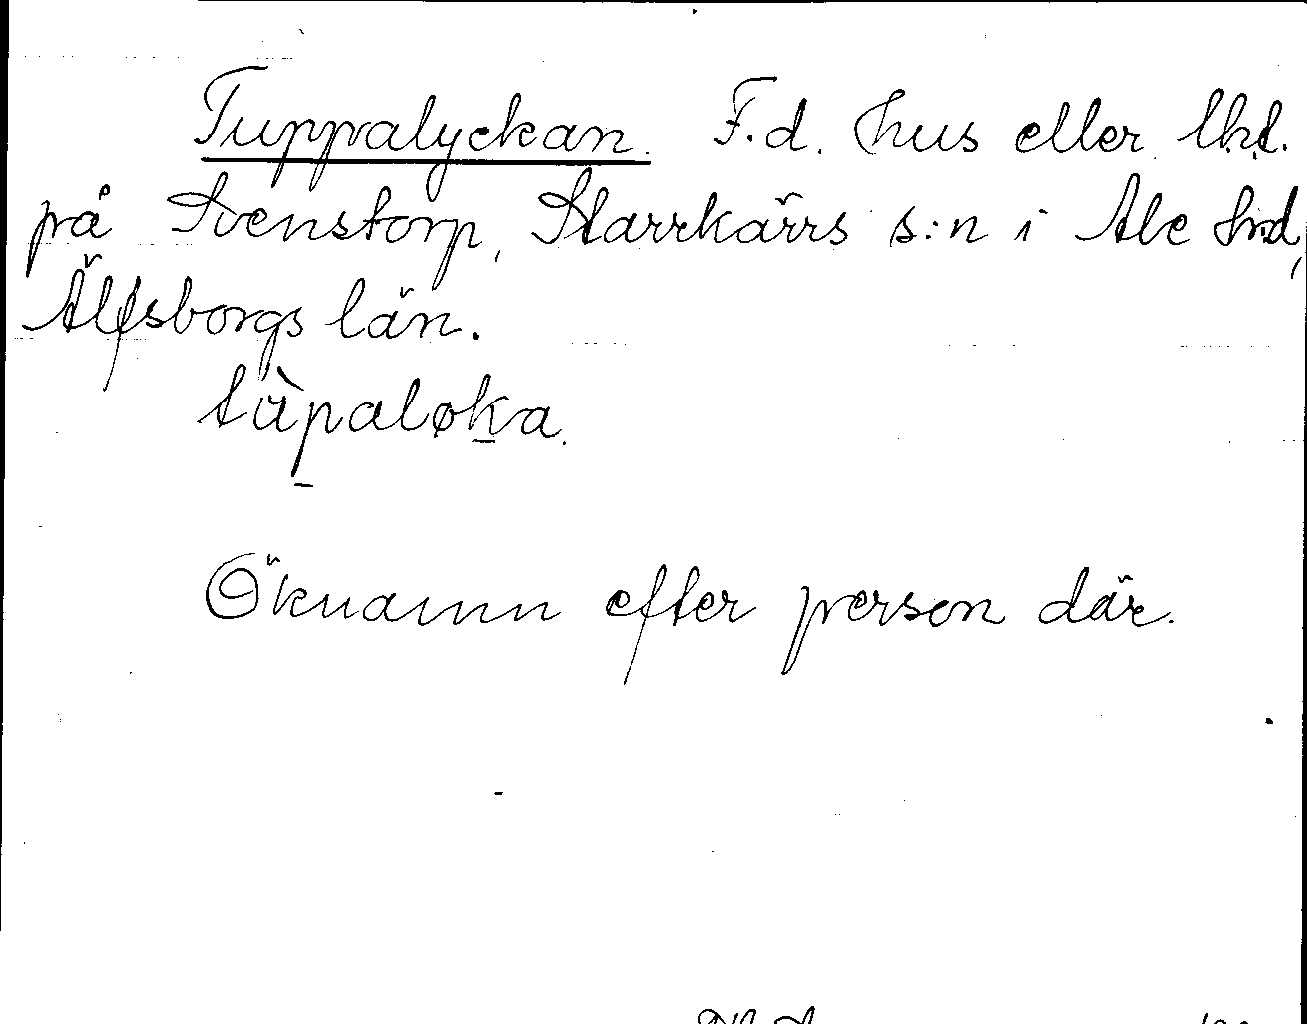 Tuppalyckan. F.d. hus eller lht.
på Svenstorp, Starrkärrs s:n i Ale hd,
Älfsborgs län.
tùpaløka.
Öknamn efter person där.